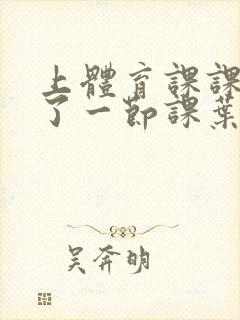 上體育課課
了一節課葉
吴奔明